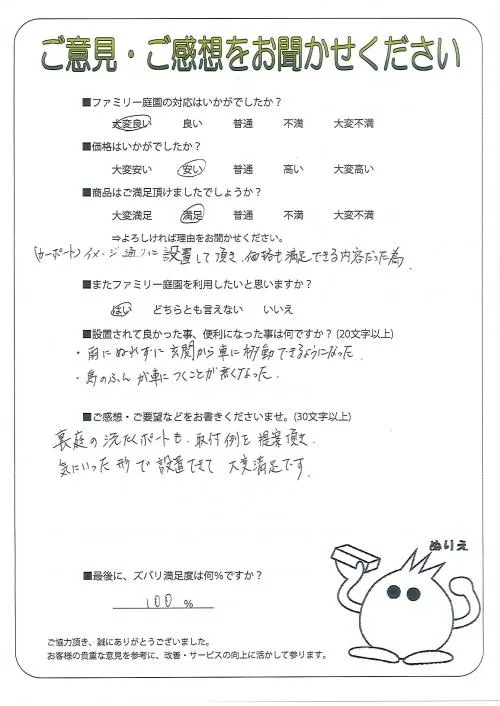 ご意見・ご感想をお聞かせください
■ファミリー庭園の対応はいかがでしたか?
大変良い 良い 普通 不満 大変不満
■価格はいかがでしたか?
大変安い 安い 普通 高い 大変高い
■商品はご満足頂けましたでしょうか?
大変満足 満足 普通 不満 大変不満
⇒よろしければ理由をお聞かせください。
(カーポート)イメージ通りに設置して頂き、価格も満足できる内容だった為
■またファミリー庭園を利用したいと思いますか?
はい どちらとも言えない いいえ
■設置されて良かった事、便利になった事は何ですか?(20文字以上)
・雨にぬれずに玄関から車に移動できるようになった
・鳥のふんが車につくことが無くなった.
■ご感想・ご要望などをお書きくださいませ。(30文字以上)
裏庭の洗たくポートも、取付例を提案頂き、
気にいった形で設置できて大変満足です.
ぬりえ
■最後に、ズバリ満足度は何%ですか?
100 %
ご協力頂き、誠にありがとうございました。
お客様の貴重な意見を参考に、改善・サービスの向上に活かして参ります。